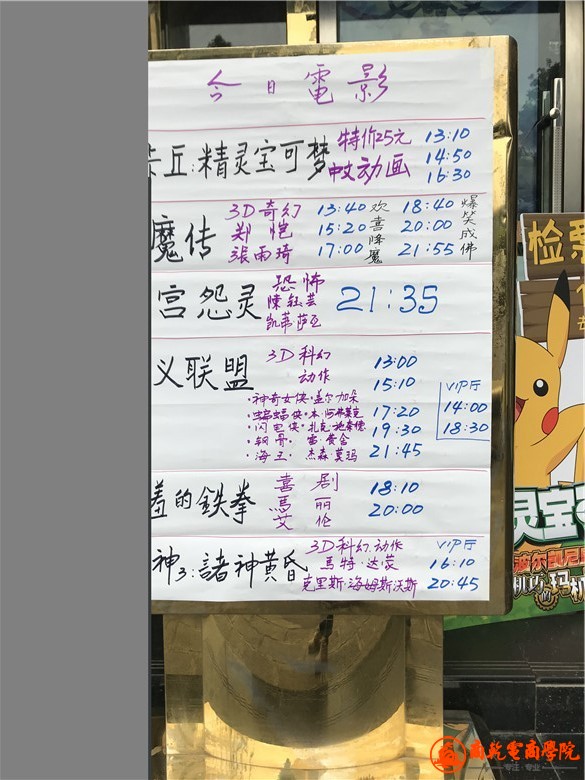 今日電影
丘:精灵宝可梦 特价25元 13:10
中文动画 14:50
16:30
魔传 3D奇幻 13:40 欢喜降魔 18:40 爆笑成佛
郑恺 15:20 20:00
張雨琦 17:00 21:55
宫怨灵 恐怖 21:35
陳鈺芸
凯蒂萨亚
义联盟 3D科幻 13:00
动作 15:10 VIP厅
·神奇女侠·盖尔加朵 14:00
·蝙蝠侠·本·阿弗莱克 17:20 18:30
·闪电侠·扎克 19:30
·钢骨·雷·费舍
·海王·杰森莫玛 21:45
羞的鉄拳 喜剧 18:10
馬丽 20:00
艾伦
神3:諸神黄昏 3D科幻.动作 VIP厅
馬特·达蒙 16:10
克里斯·海姆斯沃斯 20:45
检票
灵宝
波尔凯尼
机巧的玛机
商乾電商學院
专注·专业